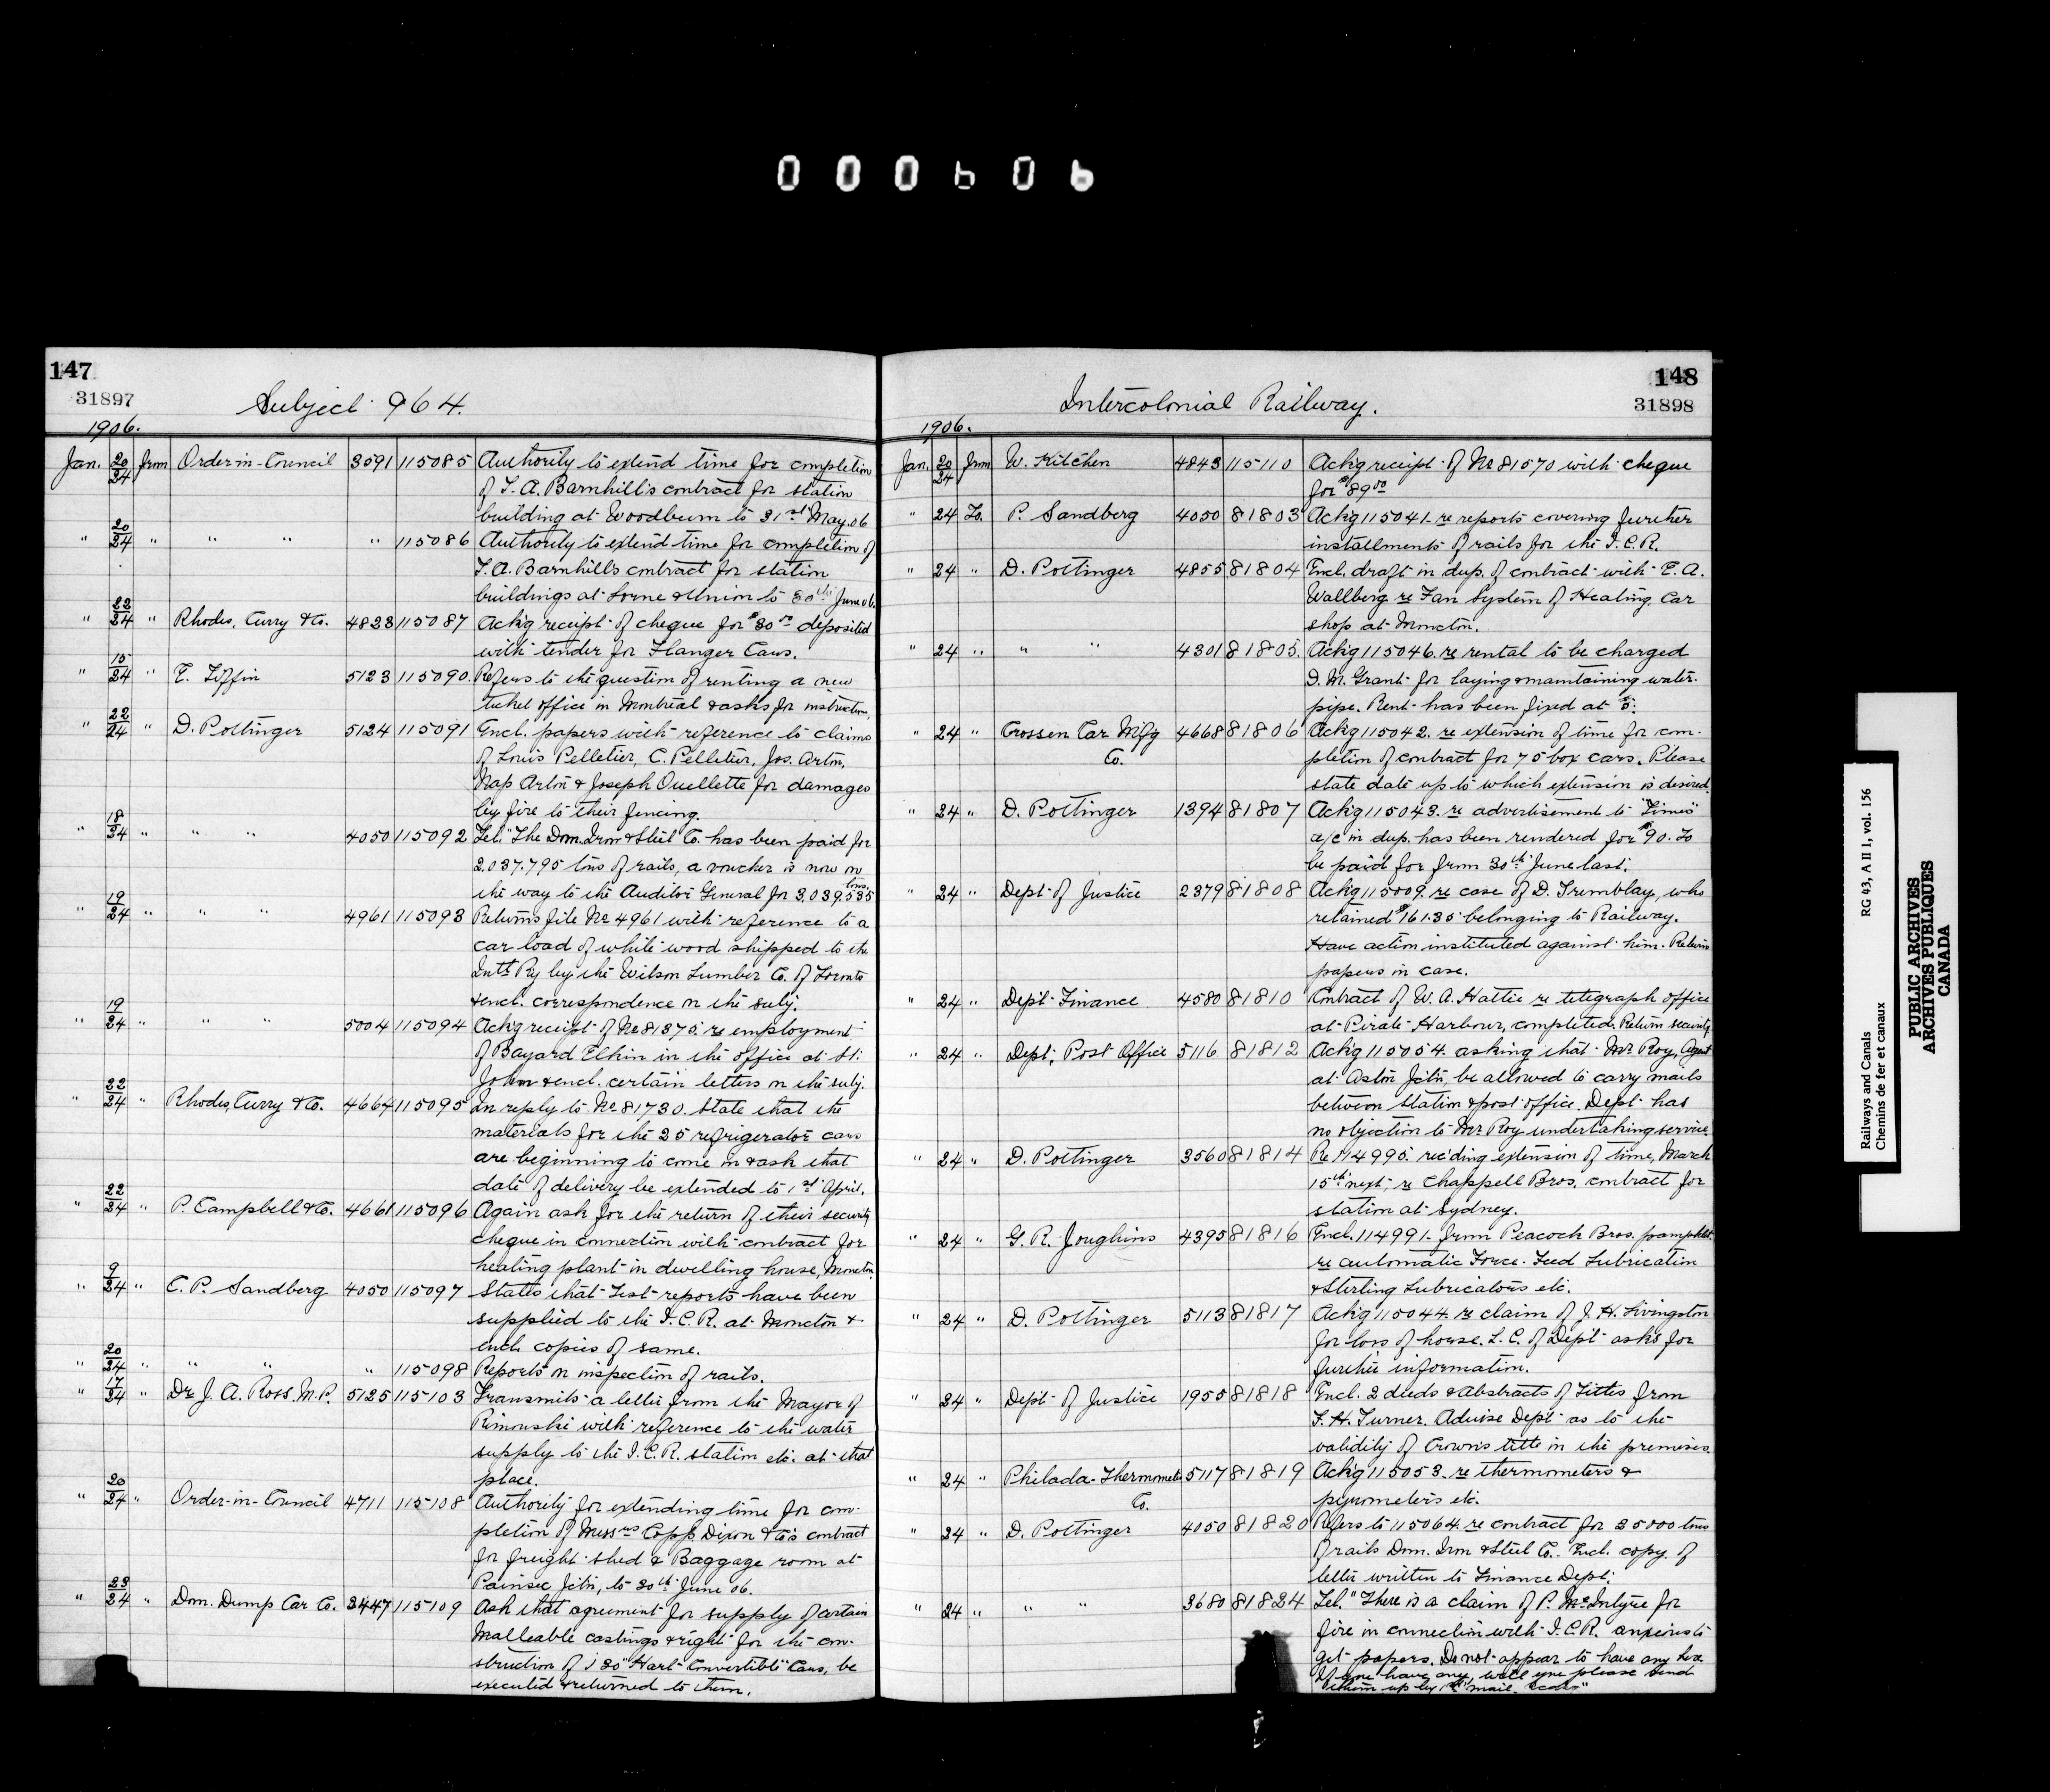 000606
147
31897
Subject 964.
1906.
Jan. 20/24 from Order-in-Council 3591 115085 Authority to extend time for completion
of T. A. Barnhill's contract for station
building at Woodburn to 31st May.06
" 20/24 " " " " 115086 Authority to extend time for completion of
T. A. Barnhill's contract for station
buildings at Lorne & Union to 30th June 06.
" 22/24 " Rhodes, Curry & Co. 4823 115087 Ackg receipt of cheque for $30.00 deposited
with tender for Flanger Cars.
" 15/24 " E. Tiffin 5123 115090. Refers to the question of renting a new
ticket office in Montreal & asks for instructions.
" 22/24 " D. Pottinger 5124 115091 Encl. papers with reference to claims
of Louis Pelletier, C. Pelletier, Jos. Arton,
Nap Arton & Joseph Ouellette for damages
by fire to their fencing.
" 18/24 " " " 4050 115092 Tel. "The Dom. Iron & Steel Co. has been paid for
2.037.795 tons of rails, a voucher is now on
the way to the Auditor General for 3.039.535 tons.
" 19/24 " " " 4961 115093 Returns file No 4961 with reference to a
car load of white wood shipped to the
Intl Ry by the Wilson Lumber Co. of Toronto
& encl. correspondence on the subj.
" 19/24 " " " 5004 115094 Ackg receipt of No 81375. re employment
of Bayard Elkin in the office at St.
John & encl. certain letters on the subj.
" 22/24 " Rhodes, Curry & Co. 4664 115095 In reply to No 81730. State that the
materials for the 25 refrigerator cars
are beginning to come in & ask that
date of delivery be extended to 1st April.
" 22/24 " P. Campbell & Co. 4661 115096 Again ask for the return of their security
cheque in connection with contract for
heating plant in dwelling house, Moncton.
" 9/24 " C. P. Sandberg 4050 115097 States that Test reports have been
supplied to the I.C.R. at Moncton &
encl. copies of same.
" 20/24 " " " " 115098 Reports on inspection of rails.
" 17/24 " Dr J. A. Ross. M.P. 5125 115103 Transmits a letter from the Mayor of
Rimouski with reference to the water
supply to the I.C.R. station etc. at that
place.
" 20/24 " Order-in-Council 4711 115108 Authority for extending time for com-
pletion of Messrs Copp Dixon & Co's contract
for freight shed & Baggage room at
Painsec Jctn, to 30th June 06.
" 23/24 " Dom. Dump Car Co. 3447 115109 Ask that agreement for supply of certain
Malleable castings & right for the con-
struction of 130 "Hart Convertible" Cars, be
executed & returned to them.
148
31898
Intercolonial Railway.
1906.
Jan. 20/24 from W. Kitchen 4843 115110 Ackg receipt of No 81570 with cheque
for $89.00
" 24 To. P. Sandberg 4050 81803 Ackg 115041. re reports covering further
installments of rails for the I.C.R.
" 24 " D. Pottinger 4855 81804 Encl. draft in dup. of contract with E. A.
Wallberg re Fan System of Heating Car
shop at Moncton.
" 24 " " " 4301 81805. Ackg 115046. re rental to be charged
D. M. Grant for laying & maintaining water-
pipe. Rent has been fixed at
" 24 " Crossen Car Mfg 4668 81806 Ackg 115042. re extension of time for com-
Co. pletion of contract for 75 box cars. Please
state date up to which extension is desired.
" 24 " D. Pottinger 1394 81807 Ackg 115043. re advertisement to "Times"
a/c in dup. has been rendered for $90. To
be paid for from 30th June last.
" 24 " Dept of Justice 2379 81808 Ackg 115009. re case of D. Tremblay, who
retained $161.35 belonging to Railway.
Have action instituted against him. Return
papers in case.
" 24 " Dept. Finance 4580 81810 Contract of W. A. Hattie re telegraph office
at Pirate Harbour, completed. Return security.
" 24 " Dept. Post Office 5116 81812 Ackg 115054. asking that Mr. Roy, Agent
at Aston Jctn, be allowed to carry mails
between station & post office. Dept has
no objection to Mr Roy undertaking service.
" 24 " D. Pottinger 3560 81814 Re 114995. reciding extension of time, March
15th next, re Chappell Bros. contract for
station at Sydney.
" 24 " G. R. Joughins 4395 81816 Encl. 114991. from Peacock Bros. pamphlet
re automatic Force-Feed Lubrication
& Sterling Lubricators etc.
" 24 " D. Pottinger 5113 81817 Ackg 115044. re claim of J. H. Livingston
for loss of horse. L. C. of Dept asks for
further information.
" 24 " Dept of Justice 1955 81818 Encl. 2 deeds & Abstracts of Titles from
F. H. Turner. Advise Dept as to the
validity of Crown's title in the premises.
" 24 " Philada. Thermometer 5117 81819 Ackg 115053. re thermometers &
Co. pyrometers etc.
" 24 " D. Pottinger 4050 81820 Refers to 115064. re contract for 25000 tons
of rails Dom. Iron & Steel Co. Encl. copy of
letter written to Finance Dept.
" 24 " " " 3680 81824 Tel. "There is a claim of P. McIntyre for
fire in connection with I.C.R. anxious to
get papers. Do not appear to have any here
If you have any, will you please send
them up by 1st mail.
Railways and Canals
Chemins de fer et canaux
RG 43, A II 1, vol. 156
PUBLIC ARCHIVES
ARCHIVES PUBLIQUES
CANADA